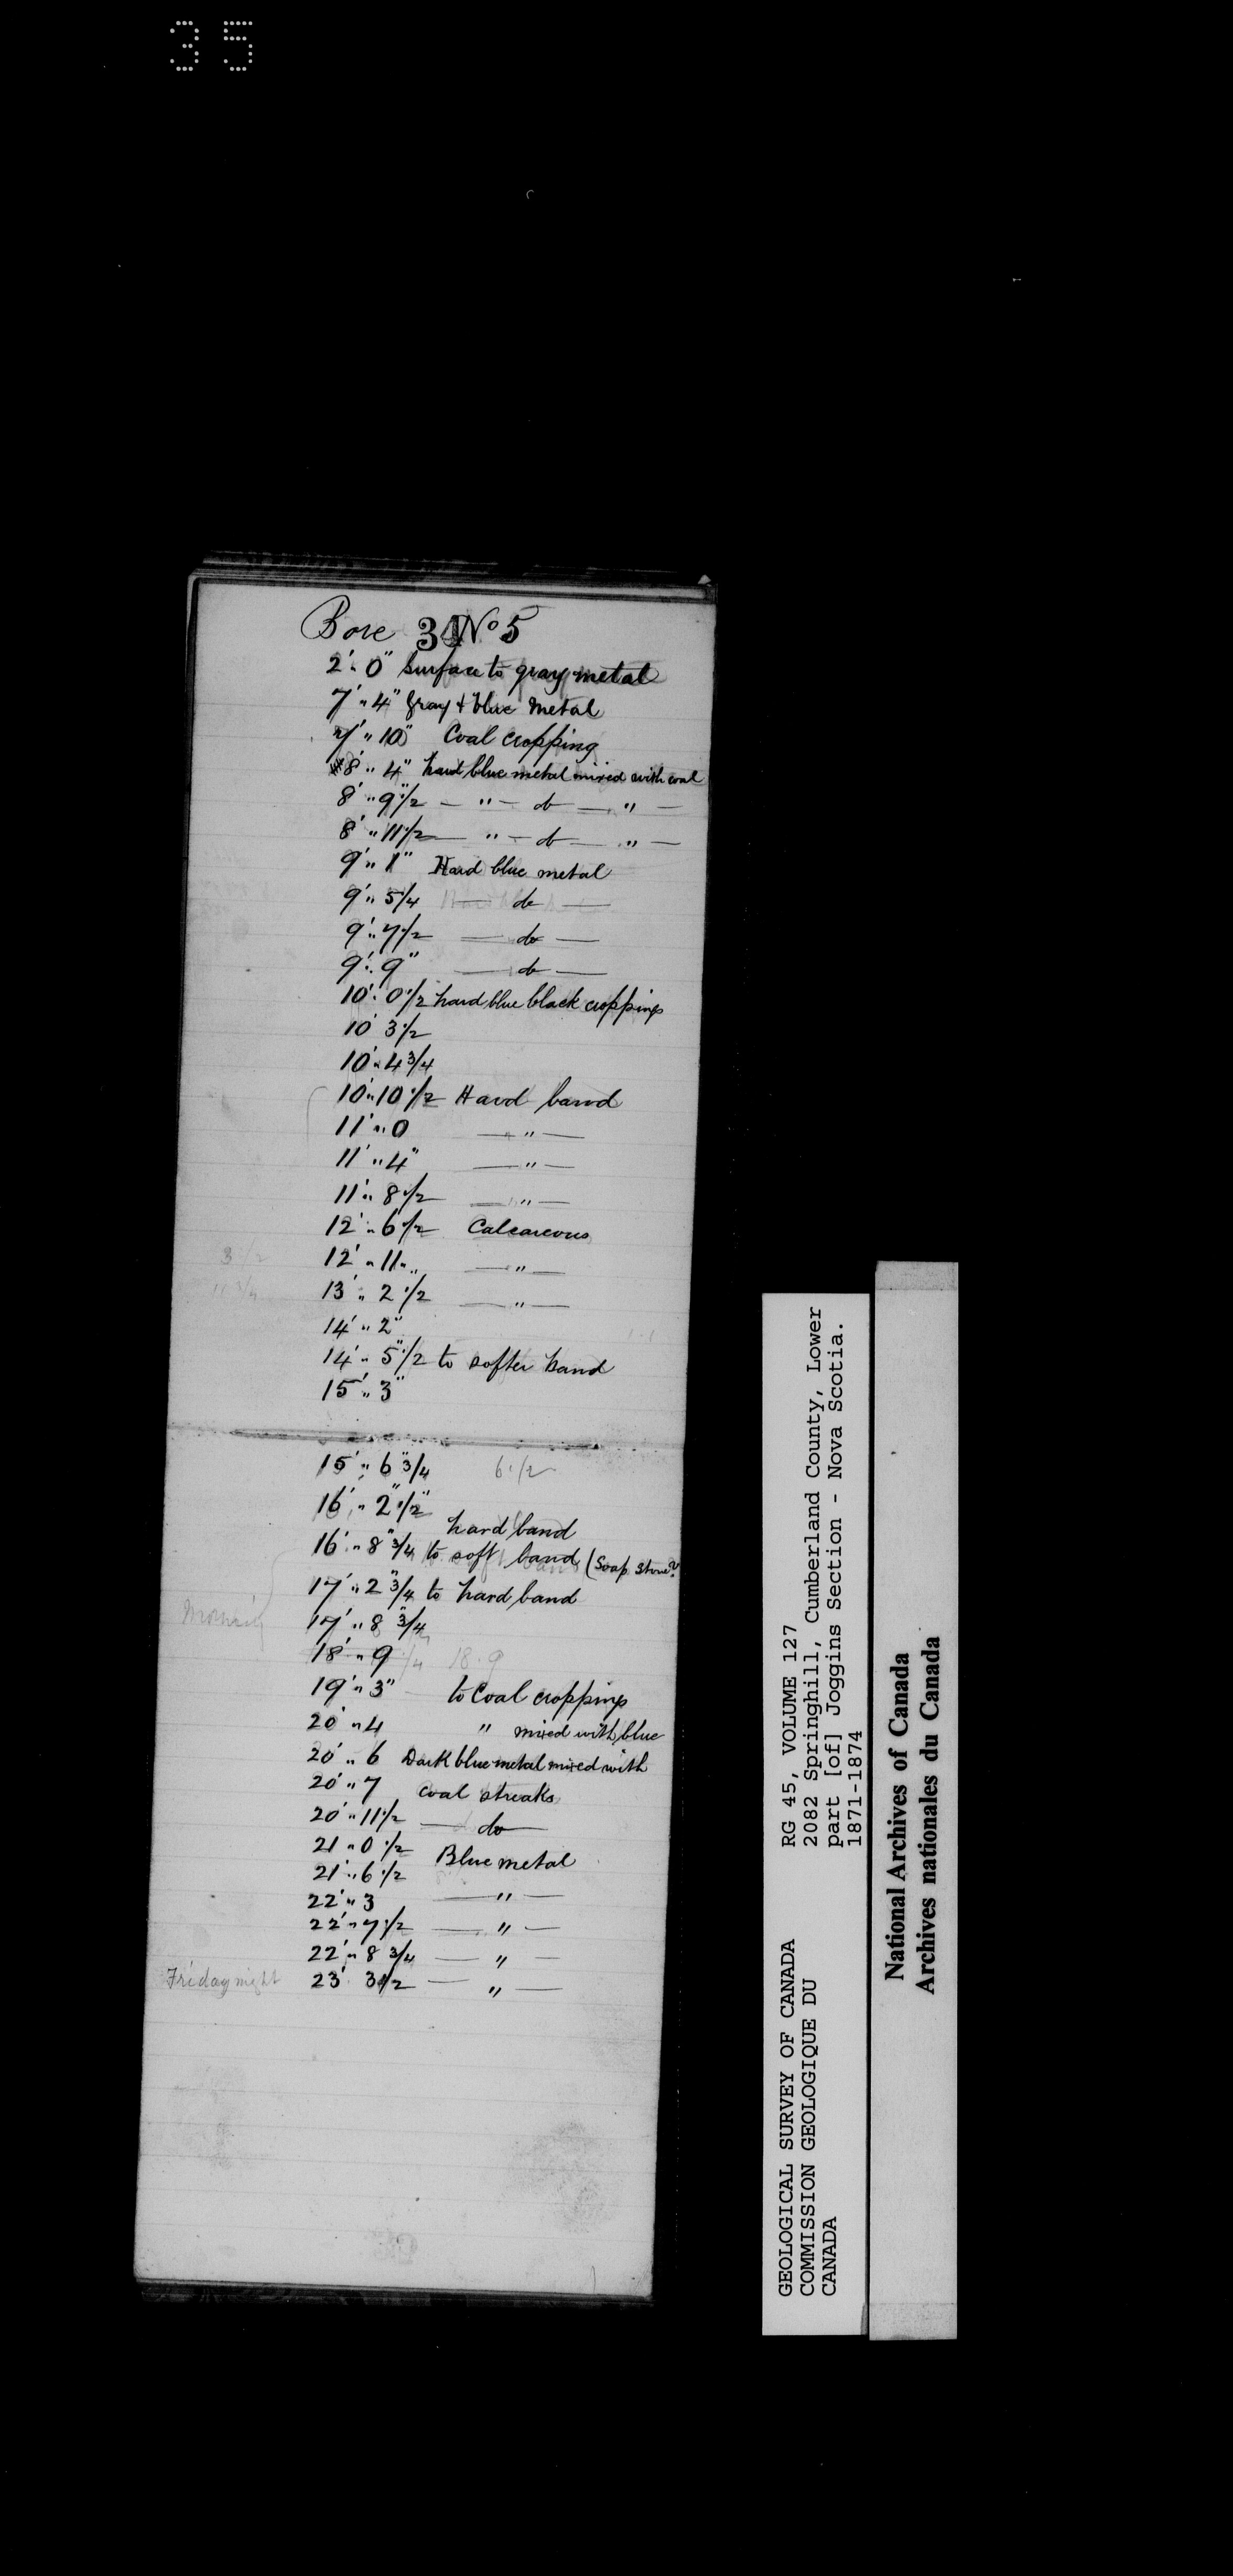 35
Bore 34 No 5
2'" 0" Surface to gray metal
7'" 4" Gray + blue metal
7'" 10" Coal cropping
8'" 4" hard blue metal mixed with coal
8'" 9"1/2 — " — do — " —
8'" 11"1/2 — " — do — " —
9'" 1" Hard blue metal
9'" 5 1/4 — do —
9'" 7 1/2 — do —
9'" 9" — do —
10'" 0 1/2 hard blue black croppings
10' 3 1/2
10'" 4 3/4
10'" 10 1/2 Hard band
11'" 0 — " —
11'" 4" — " —
11'" 8 1/2 — " —
12'" 6 1/2 Calcareous
3 1/2 12'" 11 " — " —
11 3/4 13'" 2 1/2 — " —
14'" 2"
14'" 5"1/2 to softer band
15'" 3"
15'" 6"3/4 6 1/2
16'" 2"1/2
hard band
16'" 8"3/4 to soft band (Soap stone?
17'" 2"3/4 to hard band
Morning 17'" 8"3/4
18'" 9 1/4 18.9
19'" 3" to Coal croppings
20'" 4 " mixed with blue
20'" 6 Dark blue metal mixed with
20'" 7 coal streaks
20'" 11 1/2 — do —
21'" 0 1/2
21'" 6 1/2 Blue metal
22'" 3 — " —
22'" 7 1/2 — " —
22'" 8 3/4 — " —
Friday night 23' 3 1/2 — " —
GEOLOGICAL SURVEY OF CANADA RG 45, VOLUME 127
COMMISSION GEOLOGIQUE DU 2082 Springhill, Cumberland County, Lower
CANADA part [of] Joggins Section - Nova Scotia.
1871-1874
National Archives of Canada
Archives nationales du Canada